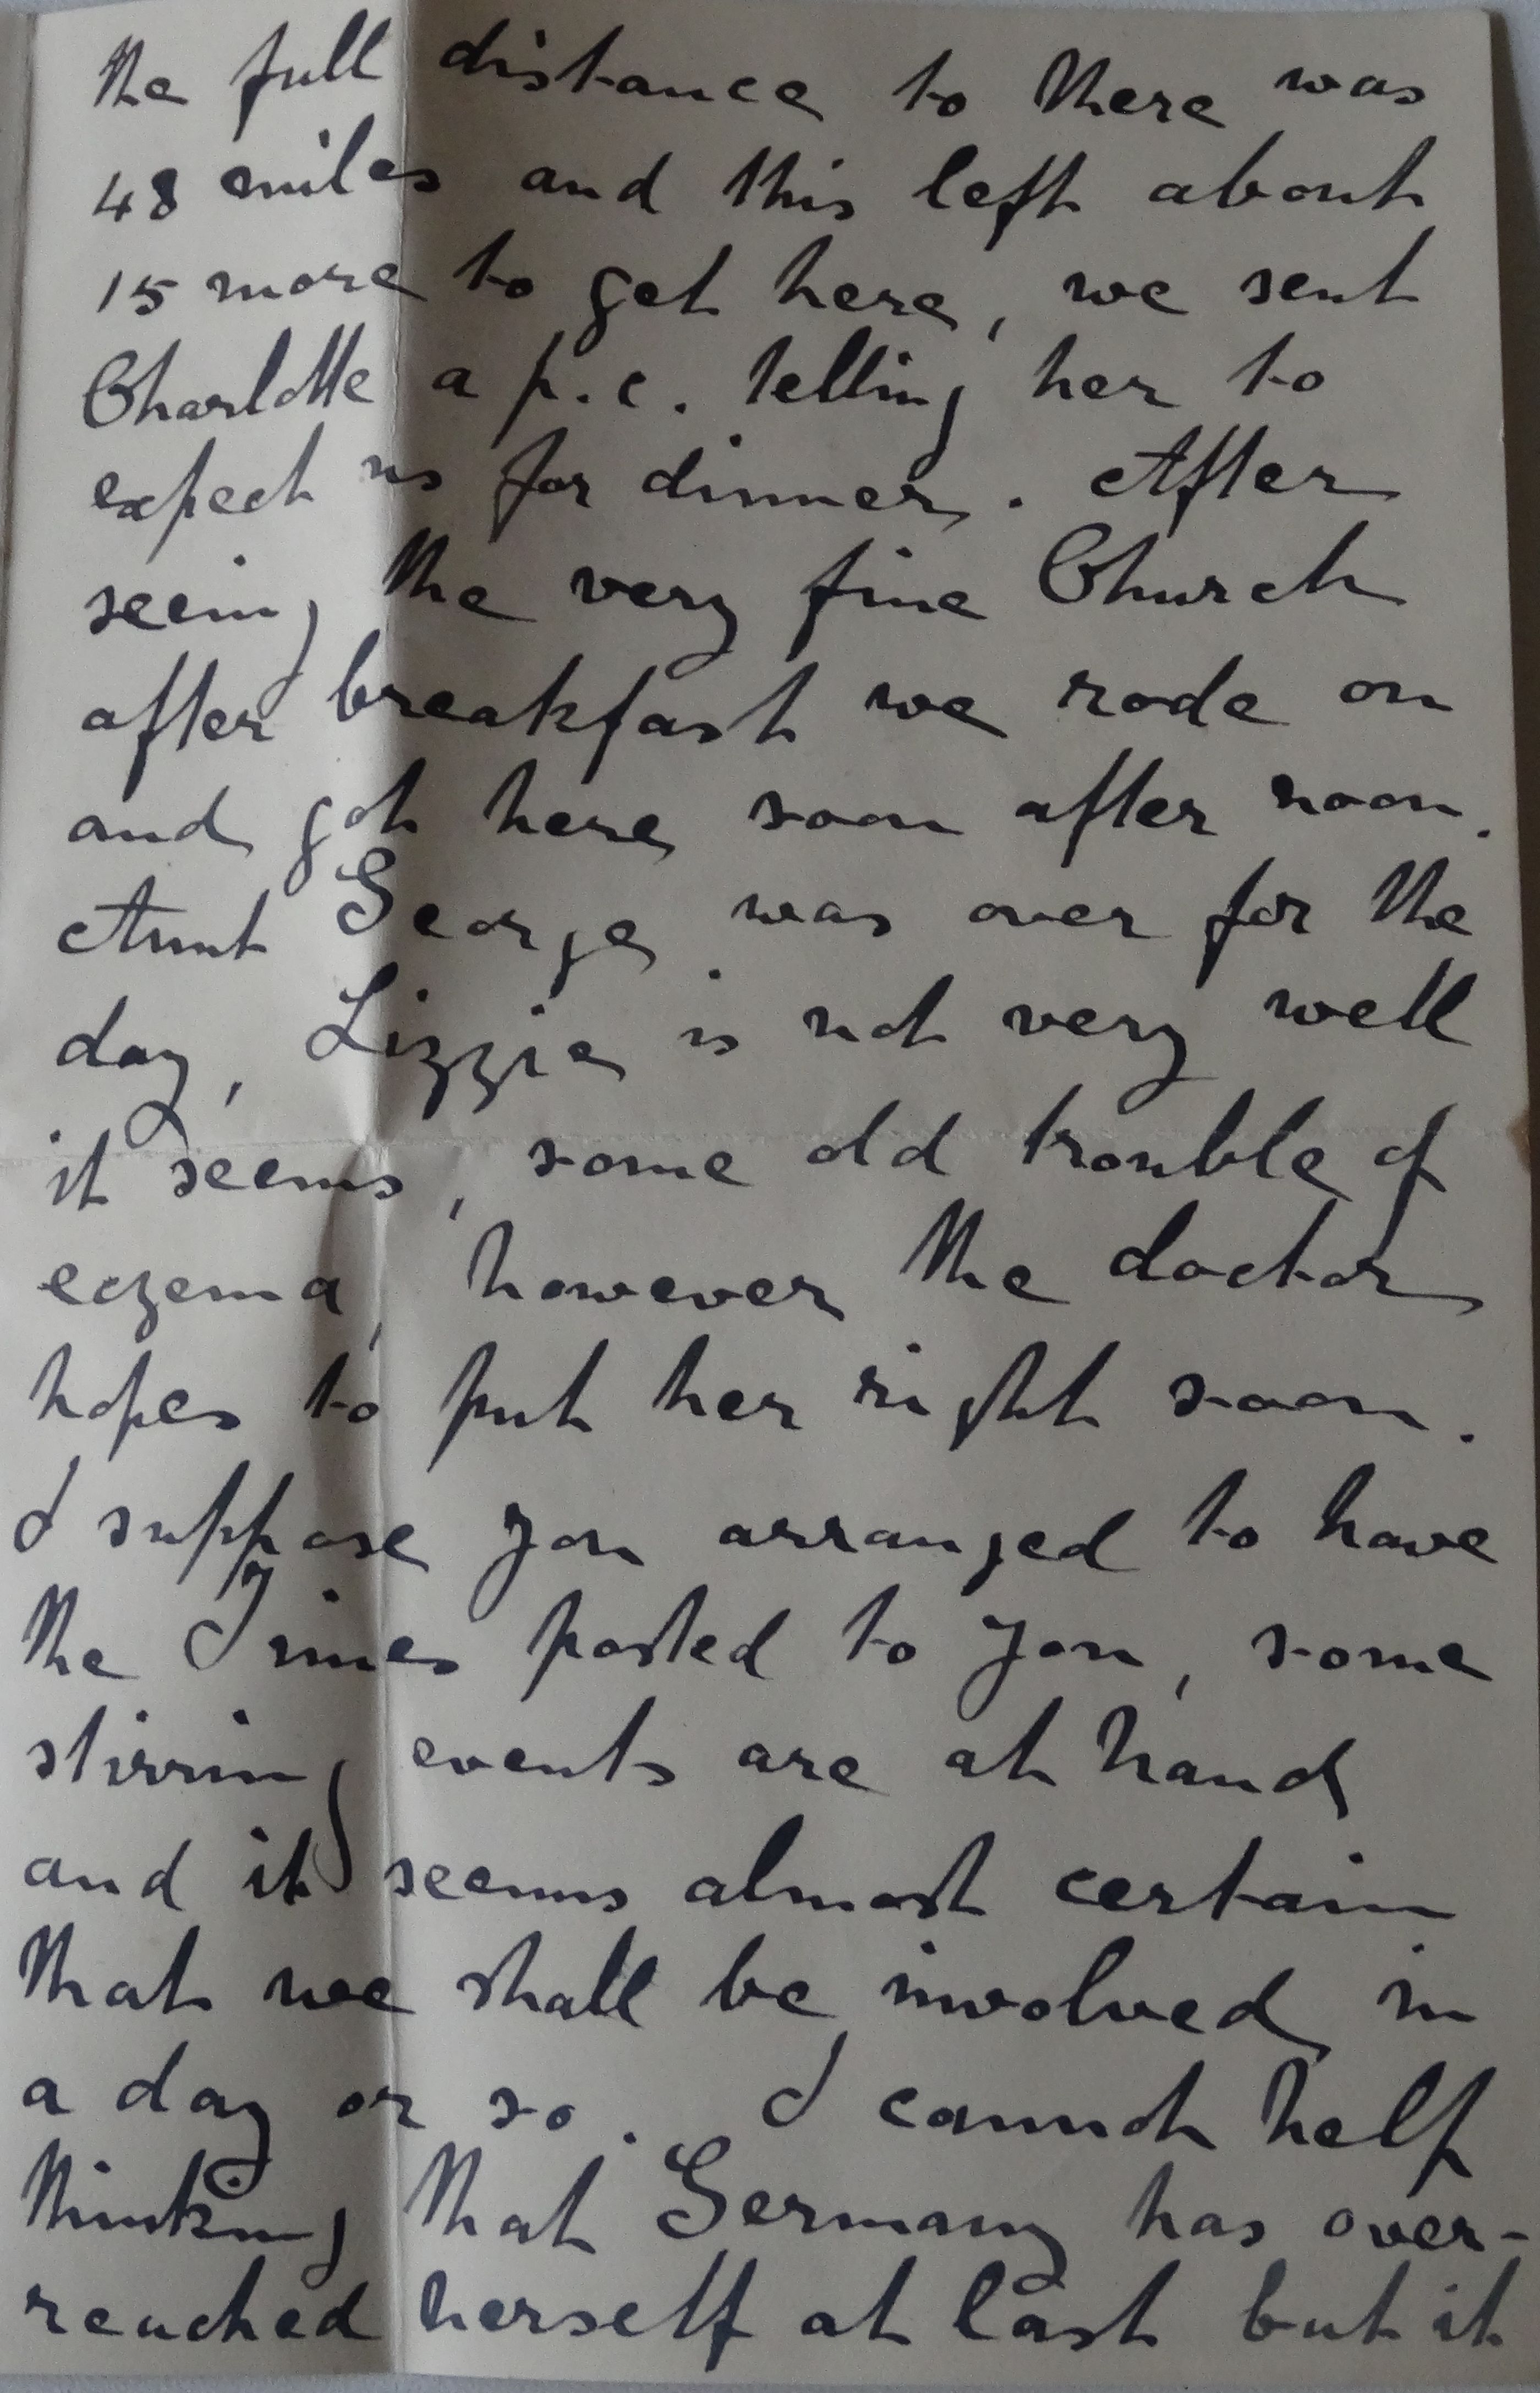 the full distance to there was
48 miles and this left about
15 more to get here, we sent
Charlotte a p.c. telling her to
expect us for dinner. After
seeing the very fine Church
after breakfast we rode on
and got here soon after noon.
Aunt George was over for the
day, Lizzie is not very well
it seems, some old trouble of
eczema, however the doctor
hopes to put her right soon.
I suppose you arranged to have
the Times posted to you, some
stirring events are at hand
and it seems almost certain
that we shall be involved in
a day or so. I cannot help
thinking that Germany has over-
reached herself at last but it